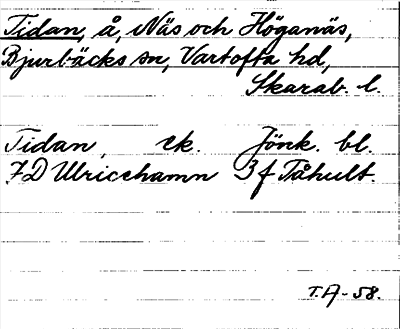 Tidan, å, Näs och Höganäs,
Bjurbäcks sn, Vartofta hd,
Skarab. l.
Tidan, ek. Jönk. bl.
7D Ulricehamn 3f Tåhult.
T.A-58.